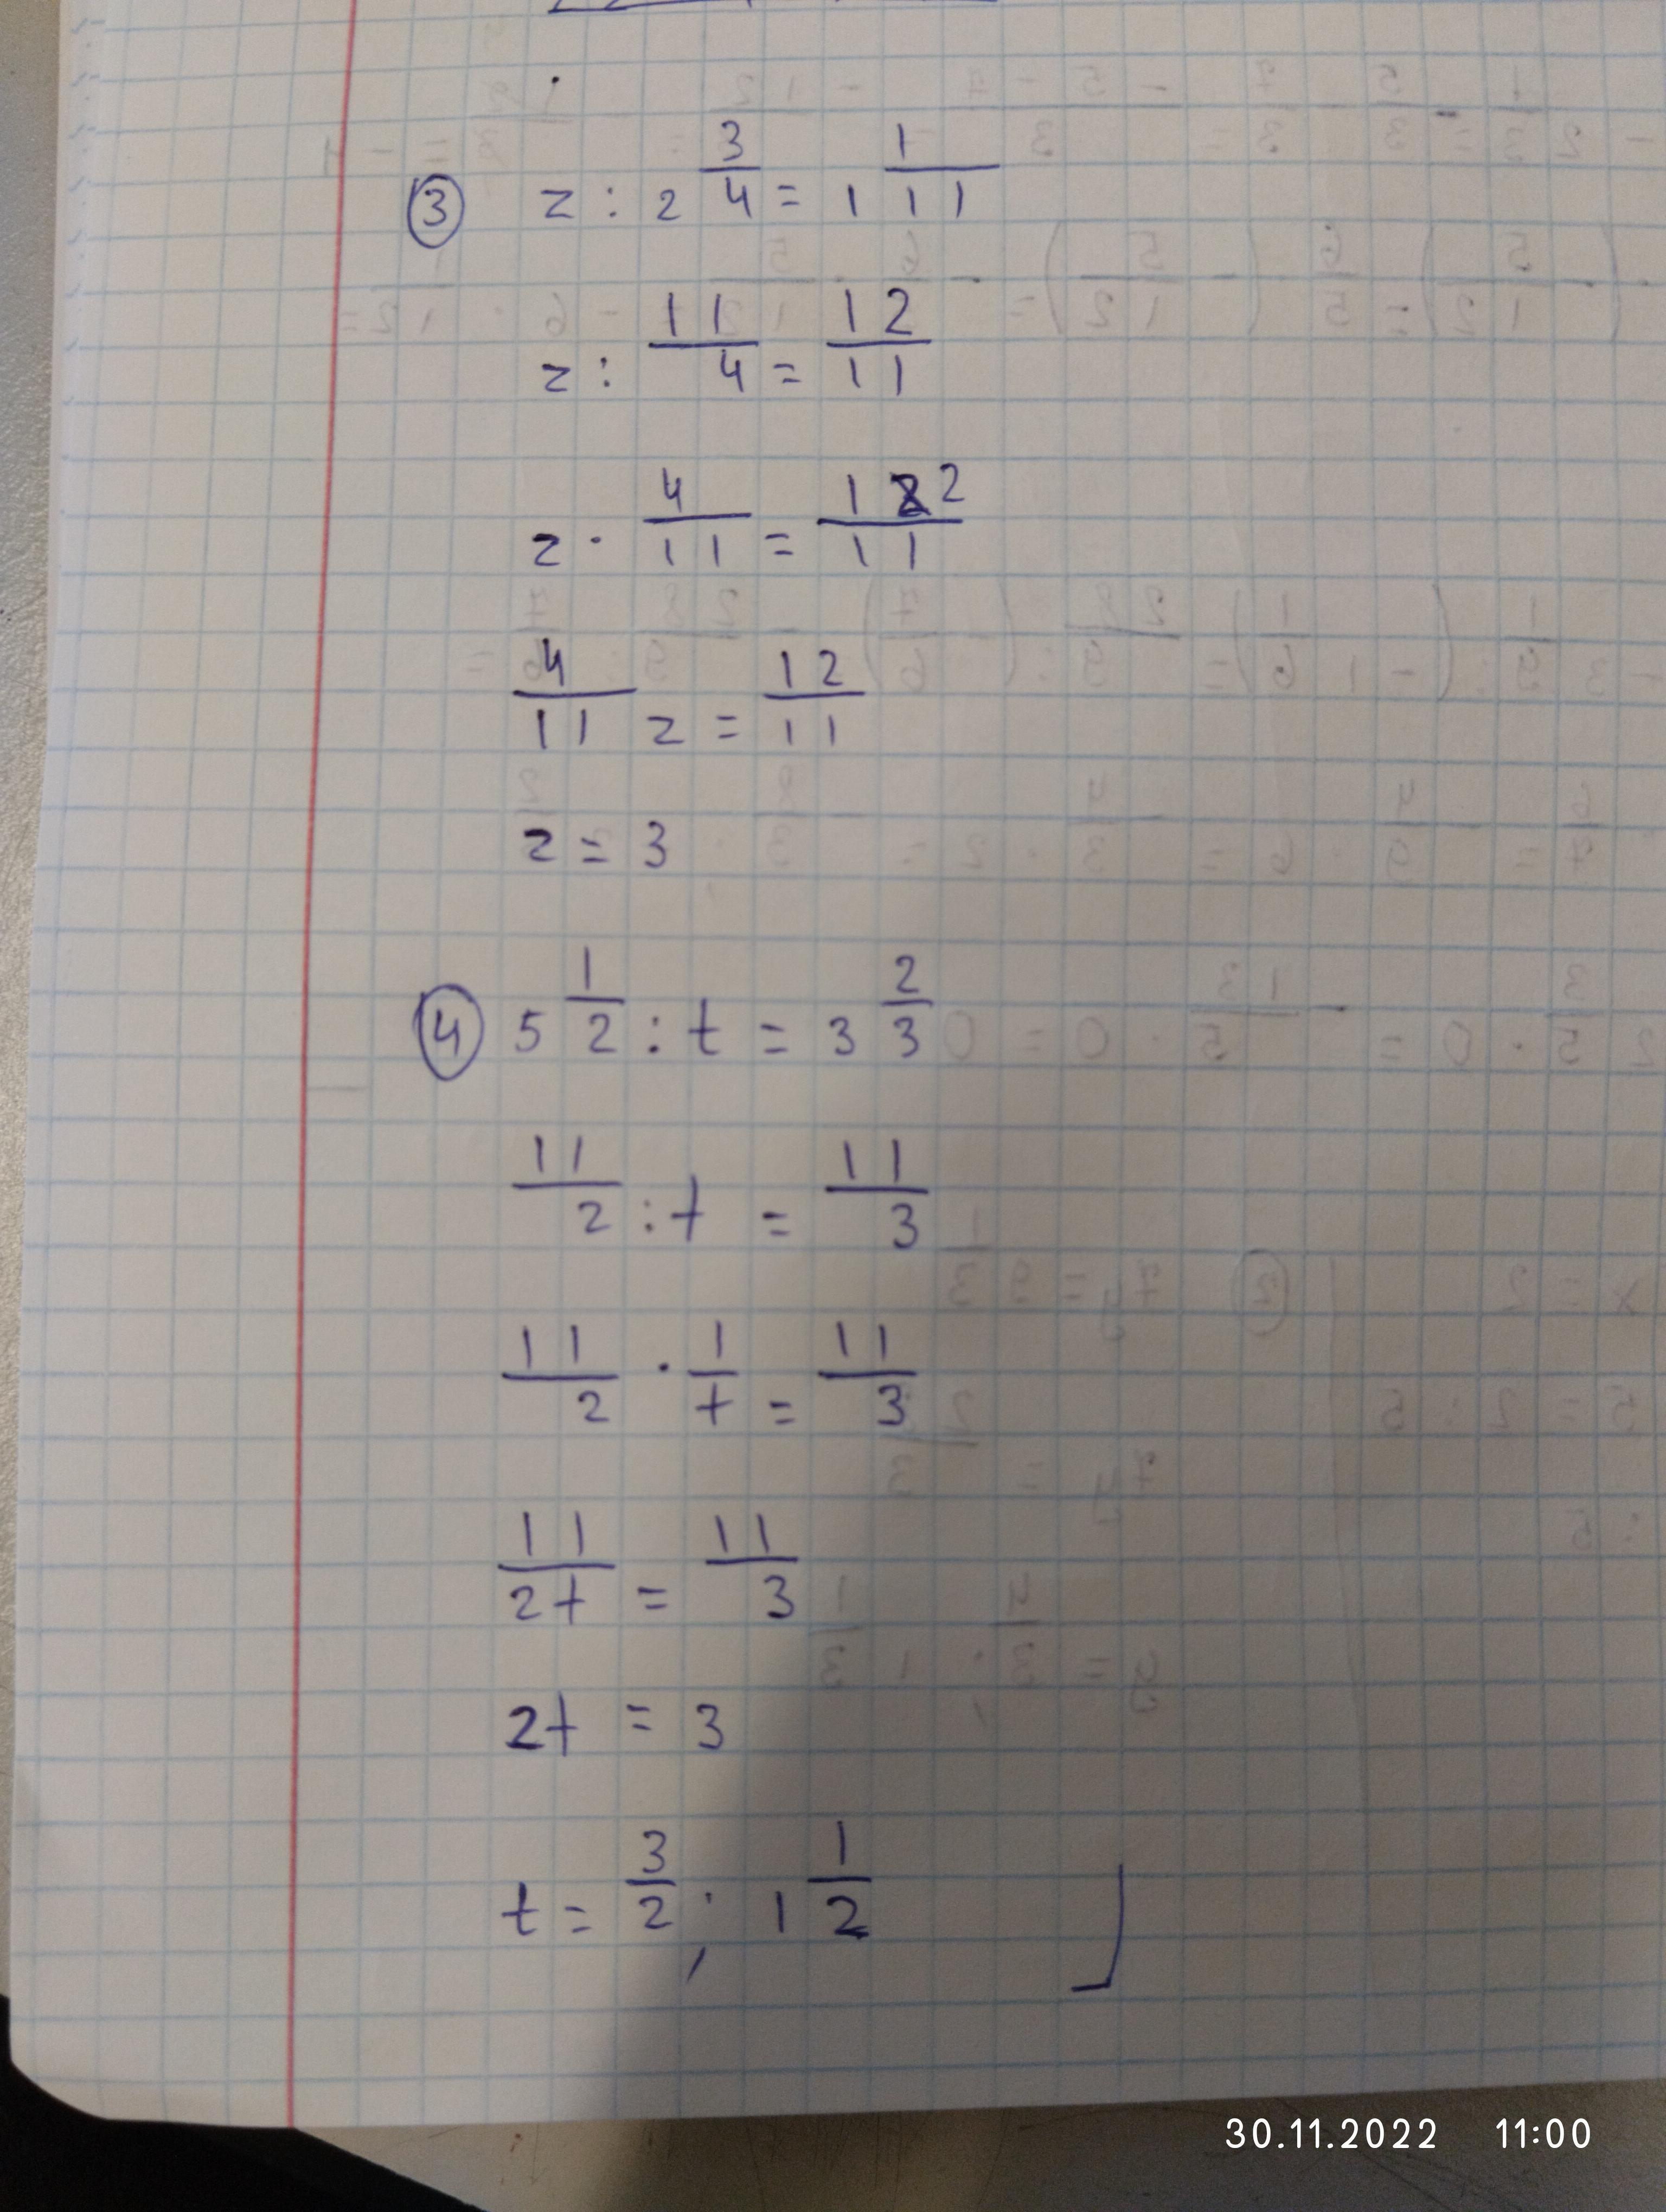 ③ z : 2 3/4 = 1 1/11
z : 11/4 = 12/11
z · 4/11 = 12/11
4/11 z = 12/11
z = 3
④ 5 1/2 : t = 3 2/3
11/2 : t = 11/3
11/2 · 1/t = 11/3
11/2t = 11/3
2t = 3
t = 3/2 ; 1 1/2
30.11.2022 11:00